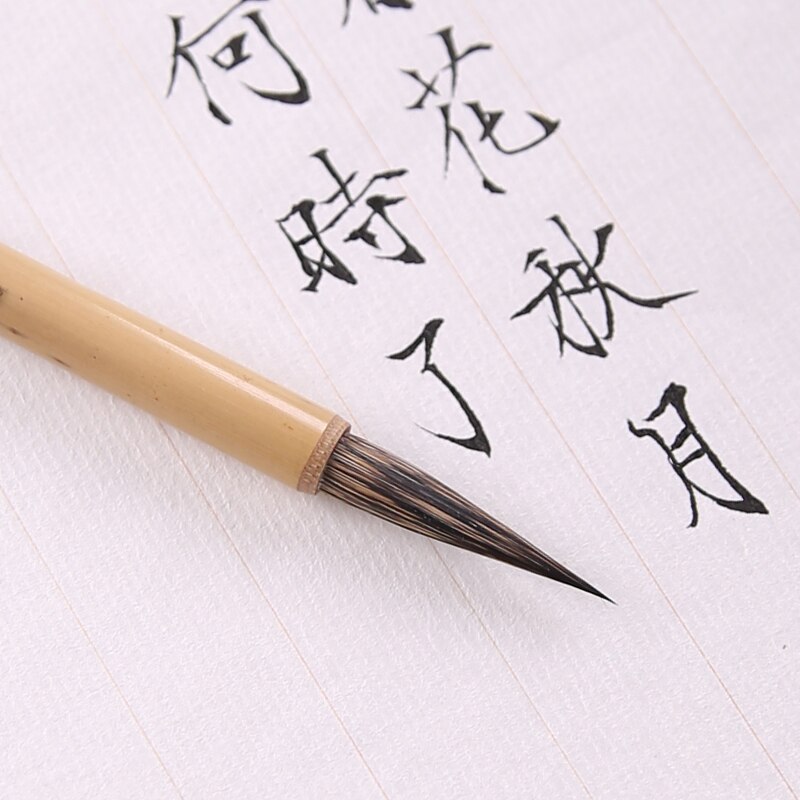 花秋月
何時了